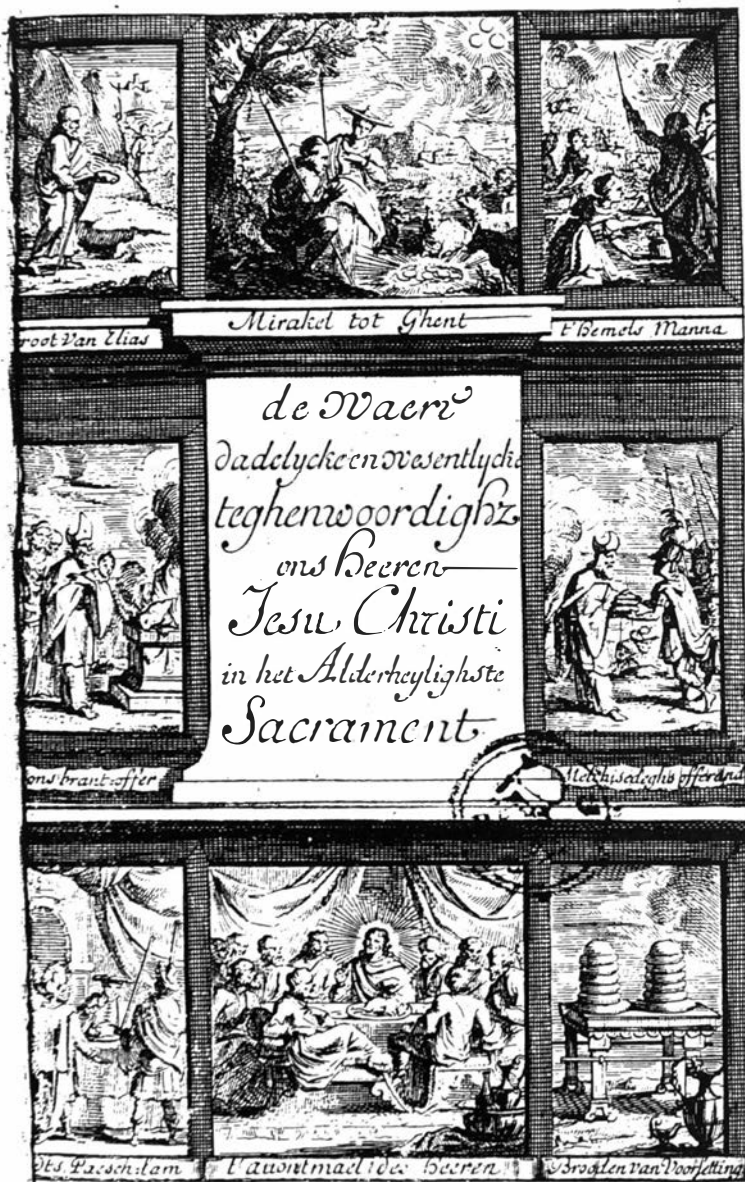 root Van Elias
Mirakel tot Ghent
t'Hemels Manna
de Waere
dadelycke en wesentlycke
teghenwoordigh
ons heeren
Jesu Christi
in het Alderheylighste
Sacrament
ons brant:offer
Melchisedeghs offerand
dts. Paesch:lam
t'avontmael:des heeren
Brooden van Voorsetting